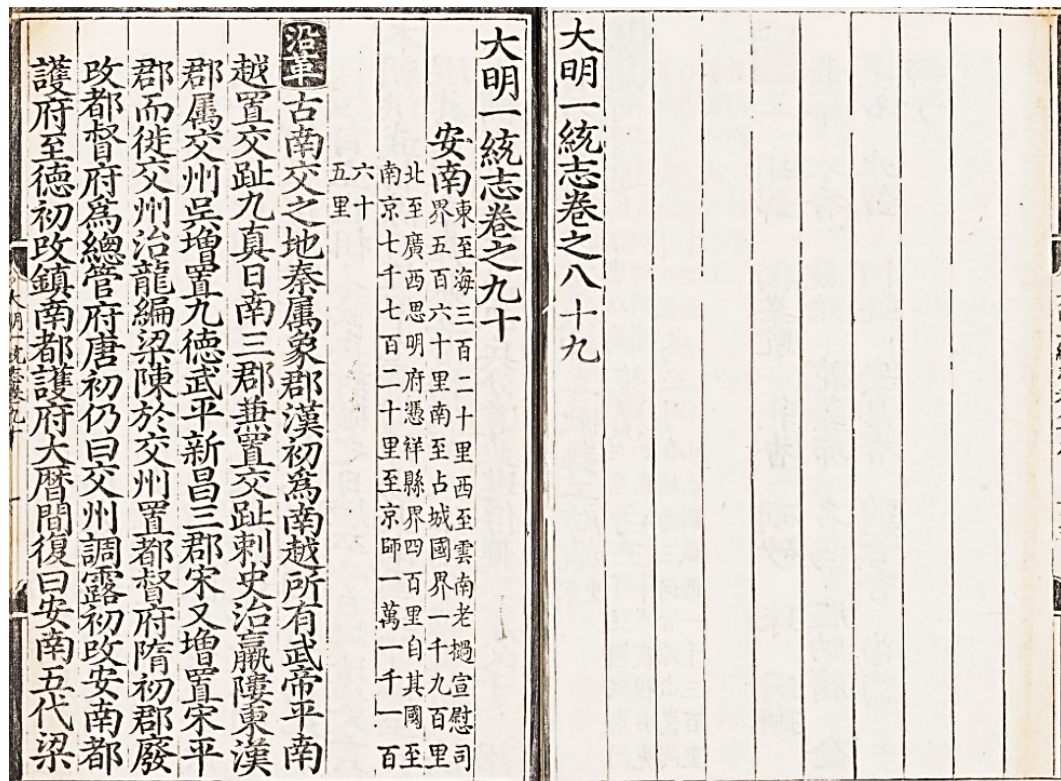 大明一統志卷之八十九
大明一統志卷之九十
安南
東至海三百二十里西至雲南老撾宣慰司
界五百六十里南至占城國界一千九百里
北至廣西思明府憑祥縣界四百里自其國至
南京七千七百二十里至京師一萬一千一百
六十
五里
沿革古南交之地秦屬象郡漢初爲南越所有武帝平南
越置交趾九真日南三郡兼置交趾刺史治羸𨻻東漢
郡屬交州吳增置九德武平新昌三郡宋又增置宋平
郡而徙交州治龍編梁陳於交州置都督府隋初郡廢
改都督府爲總管府唐初仍曰交州調露初改安南都
護府至德初改鎮南都護府大曆間復曰安南五代梁
大明一統志卷九十